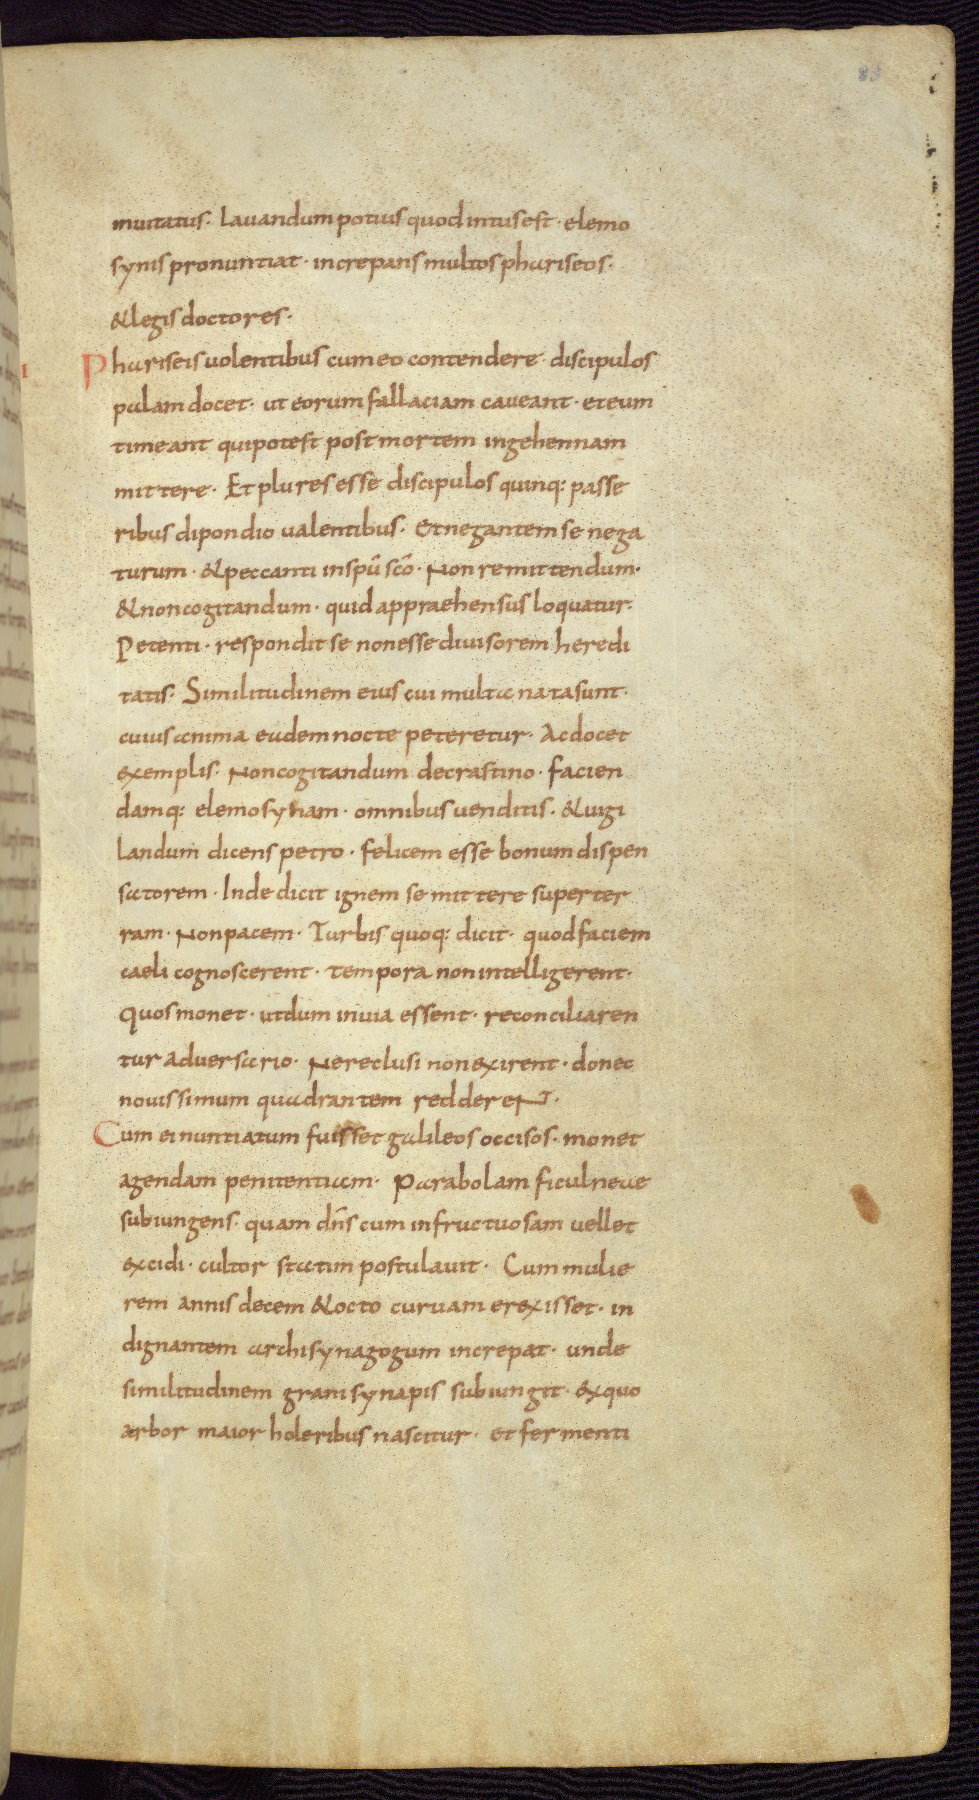 83
inuitatus· Lauandum potius quod intus est· elemo
synis pronuntiat· increpans multos phariseos·
& legis doctores·
Phariseis uolentibus cum eo contendere· discipulos
palam docet· ut eorum fallaciam caueant· et eum
timeant qui potest post mortem in gehennam
mittere· Et plures esse discipulos quinq: passe
ribus dipondio ualentibus· Et negantem se nega
turum· & peccanti in spū scō· Non remittendum·
& non cogitandum· quid appraehensus loquatur·
Petenti· respondit se non esse diuisorem heredi
tatis· Similitudinem eius cui multa nata sunt·
cuius anima eadem nocte peteretur· Ac docet
exemplis· Non cogitandum de crastino· facien
damq: elemosynam· omnibus uenditis· & uigi
landum dicens petro· felicem esse bonum dispen
satorem· Inde dicit ignem se mittere super ter
ram· Non pacem· Turbis quoq: dicit· quod faciem
caeli cognoscerent· tempora non intelligerent·
Quos monet· ut dum in uia essent· reconciliaren
tur aduersario· Ne reclusi non exirent· donec
nouissimum quadrantem redderent·
Cum ei nuntiatum fuisset galileos occisos· monet
agendam penitentiam· Parabolam ficulneae
subiungens· quam dn̄s cum infructuosam uellet
excidi· cultor statim postulauit· Cum mulie
rem annis decem & octo curuam erexisset· in
dignantem archisynagogum increpat· unde
similitudinem grani synapis subiungit· ex quo
arbor maior holeribus nascitur· et fermenti